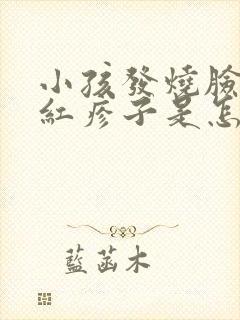 小孩發燒臉
紅疹子是怎
藍菡木